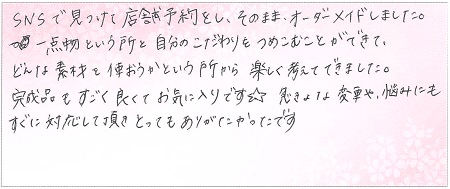 SNSで見つけて店舗予約をし、そのまま、オーダーメイドしました。
一点物という所と自分のこだわりをつめこむことができて、
どんな素材を使おうかという所から楽しく考えてできました。
完成品もすごく良くてお気に入りです☆ 急きょな変更や、悩みにも
すぐに対応して頂きとってもありがたかったです